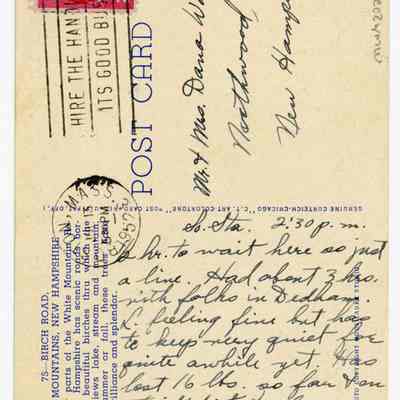 HIRE THE HAND
ITS GOOD BUS
POST CARD
Mr & Mrs. Dana
Northwood
New Hamp
GENUINE CURTEICH-CHICAGO "C.T. ART-COLORTONE" POST CARD
75—BIRCH ROAD,
MOUNTAINS, NEW HAMPSHIRE
parts of the White Mountains
Hampshire has scenic roads bor-
beautiful birches thru which the
views lake, stream and mountain.
summer or fall, these trees
brilliance and splendor.
MASS
PM
1957
So. Sta. 2:30 p.m.
hr. to wait here so just
a line. Had about 3 hrs.
with folks in Dedham.
L. feeling fine but has
to keep very quiet for
quite awhile yet. Has
lost 16 lbs. so far & on